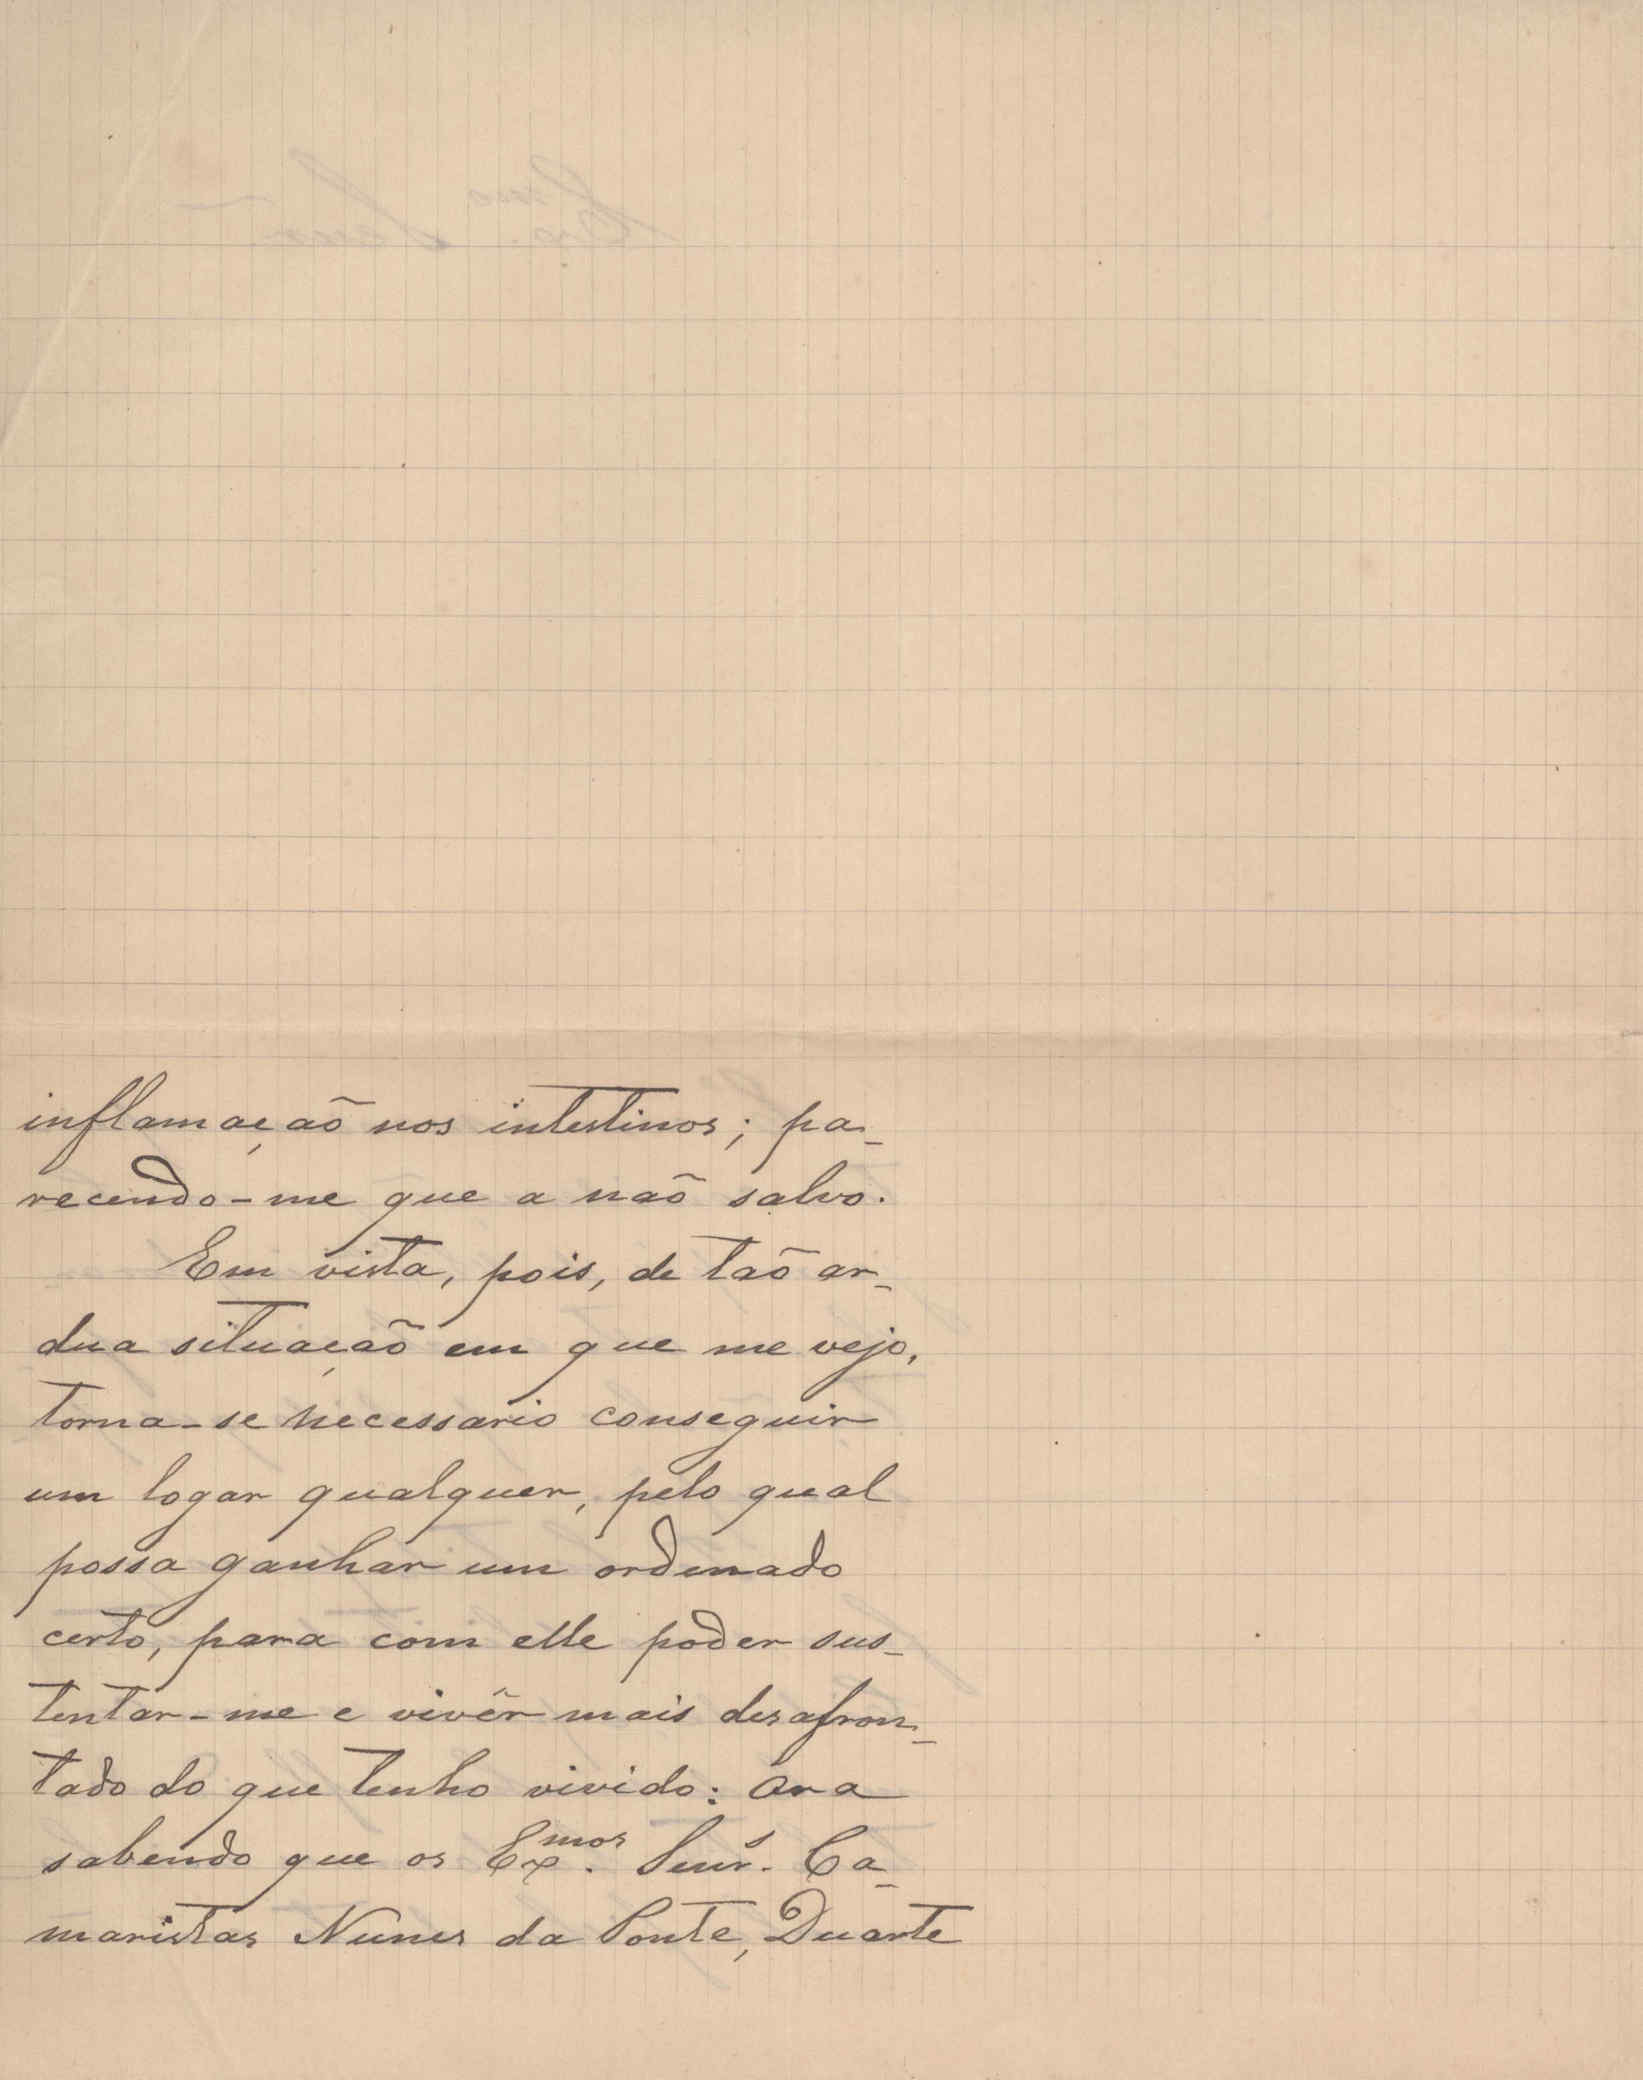 inflamação nos intestinos; pa-
recendo-me que a não salvo.
Em vista, pois, de tão ar-
dua situação em que me vejo,
torna-se necessario conseguir
um logar qualquer, pelo qual
possa ganhar um ordenado
certo, para com elle poder sus-
tentar-me e vivêr mais desafron-
tado do que tenho vivido: Ora
sabendo que os Ex.mos Senrs. Ca-
maristas Nunes da Ponte, Duarte